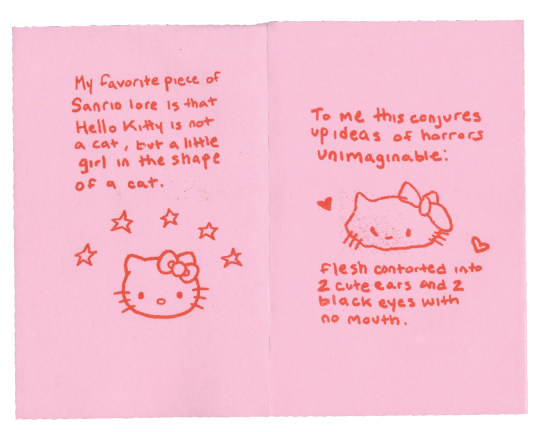 My favorite piece of
Sanrio lore is that
Hello Kitty is not
a cat, but a little
girl in the shape
of a cat.
To me this conjures
up ideas of horrors
unimaginable:
flesh contorted into
2 cute ears and 2
black eyes with
no mouth.